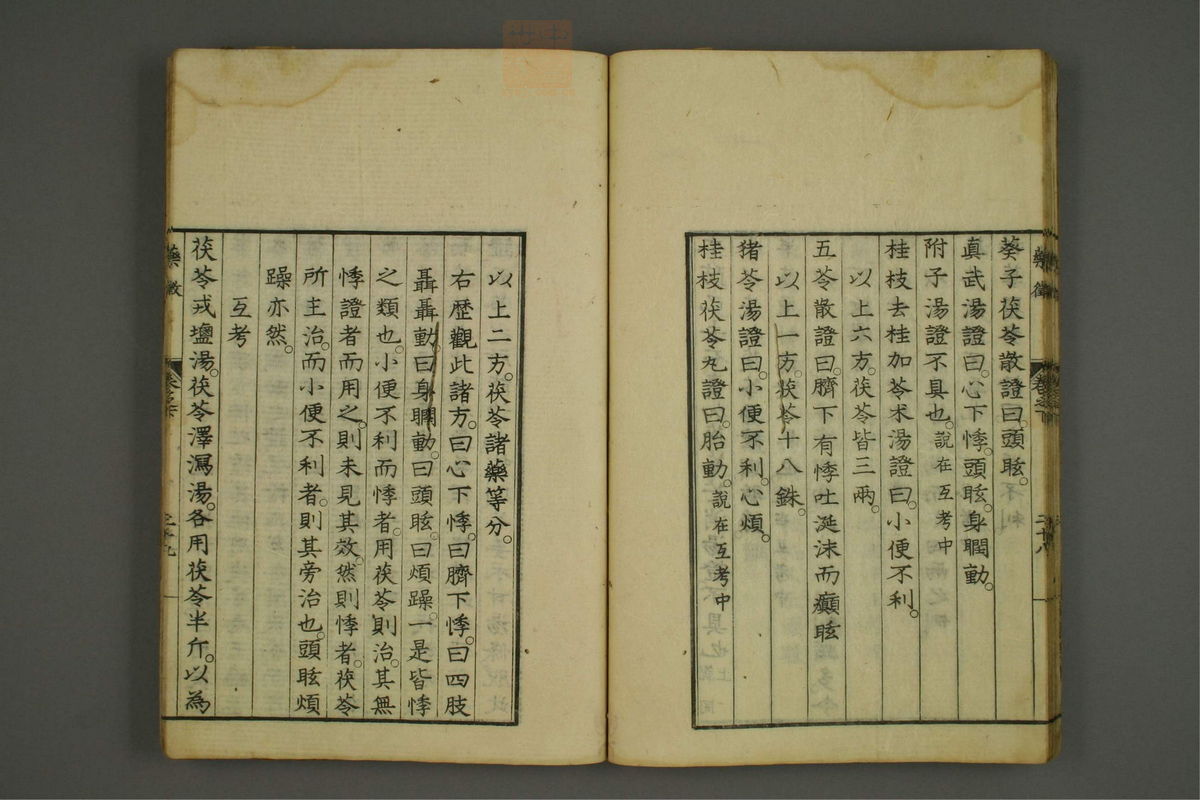 葵子茯苓散證曰。頭眩。
眞武湯證曰。心下悸。頭眩。身瞤動。
附子湯證不具也。說在互考中
桂枝去桂加苓朮湯證曰。小便不利。
以上六方。茯苓皆三兩。
五苓散證曰。臍下有悸吐涎沫而癲眩
以上一方。茯苓十八銖。
猪苓湯證曰。小便不利。心煩。
桂枝茯苓丸證曰。胎動。說在互考中
藥徵
卷之下
二十八
以上二方。茯苓諸藥等分。
右歷觀此諸方。曰心下悸。曰臍下悸。曰四肢
聶聶動。曰身瞤動。曰頭眩。曰煩躁。一是皆悸
之類也。小便不利而悸者。用茯苓則治。其無
悸證者而用之。則未見其效。然則悸者。茯苓
所主治。而小便不利者。則其旁治也。頭眩煩
躁亦然。
互考
茯苓戎鹽湯。茯苓澤瀉湯。各用茯苓半斤。以為
藥徵
卷之下
二十九